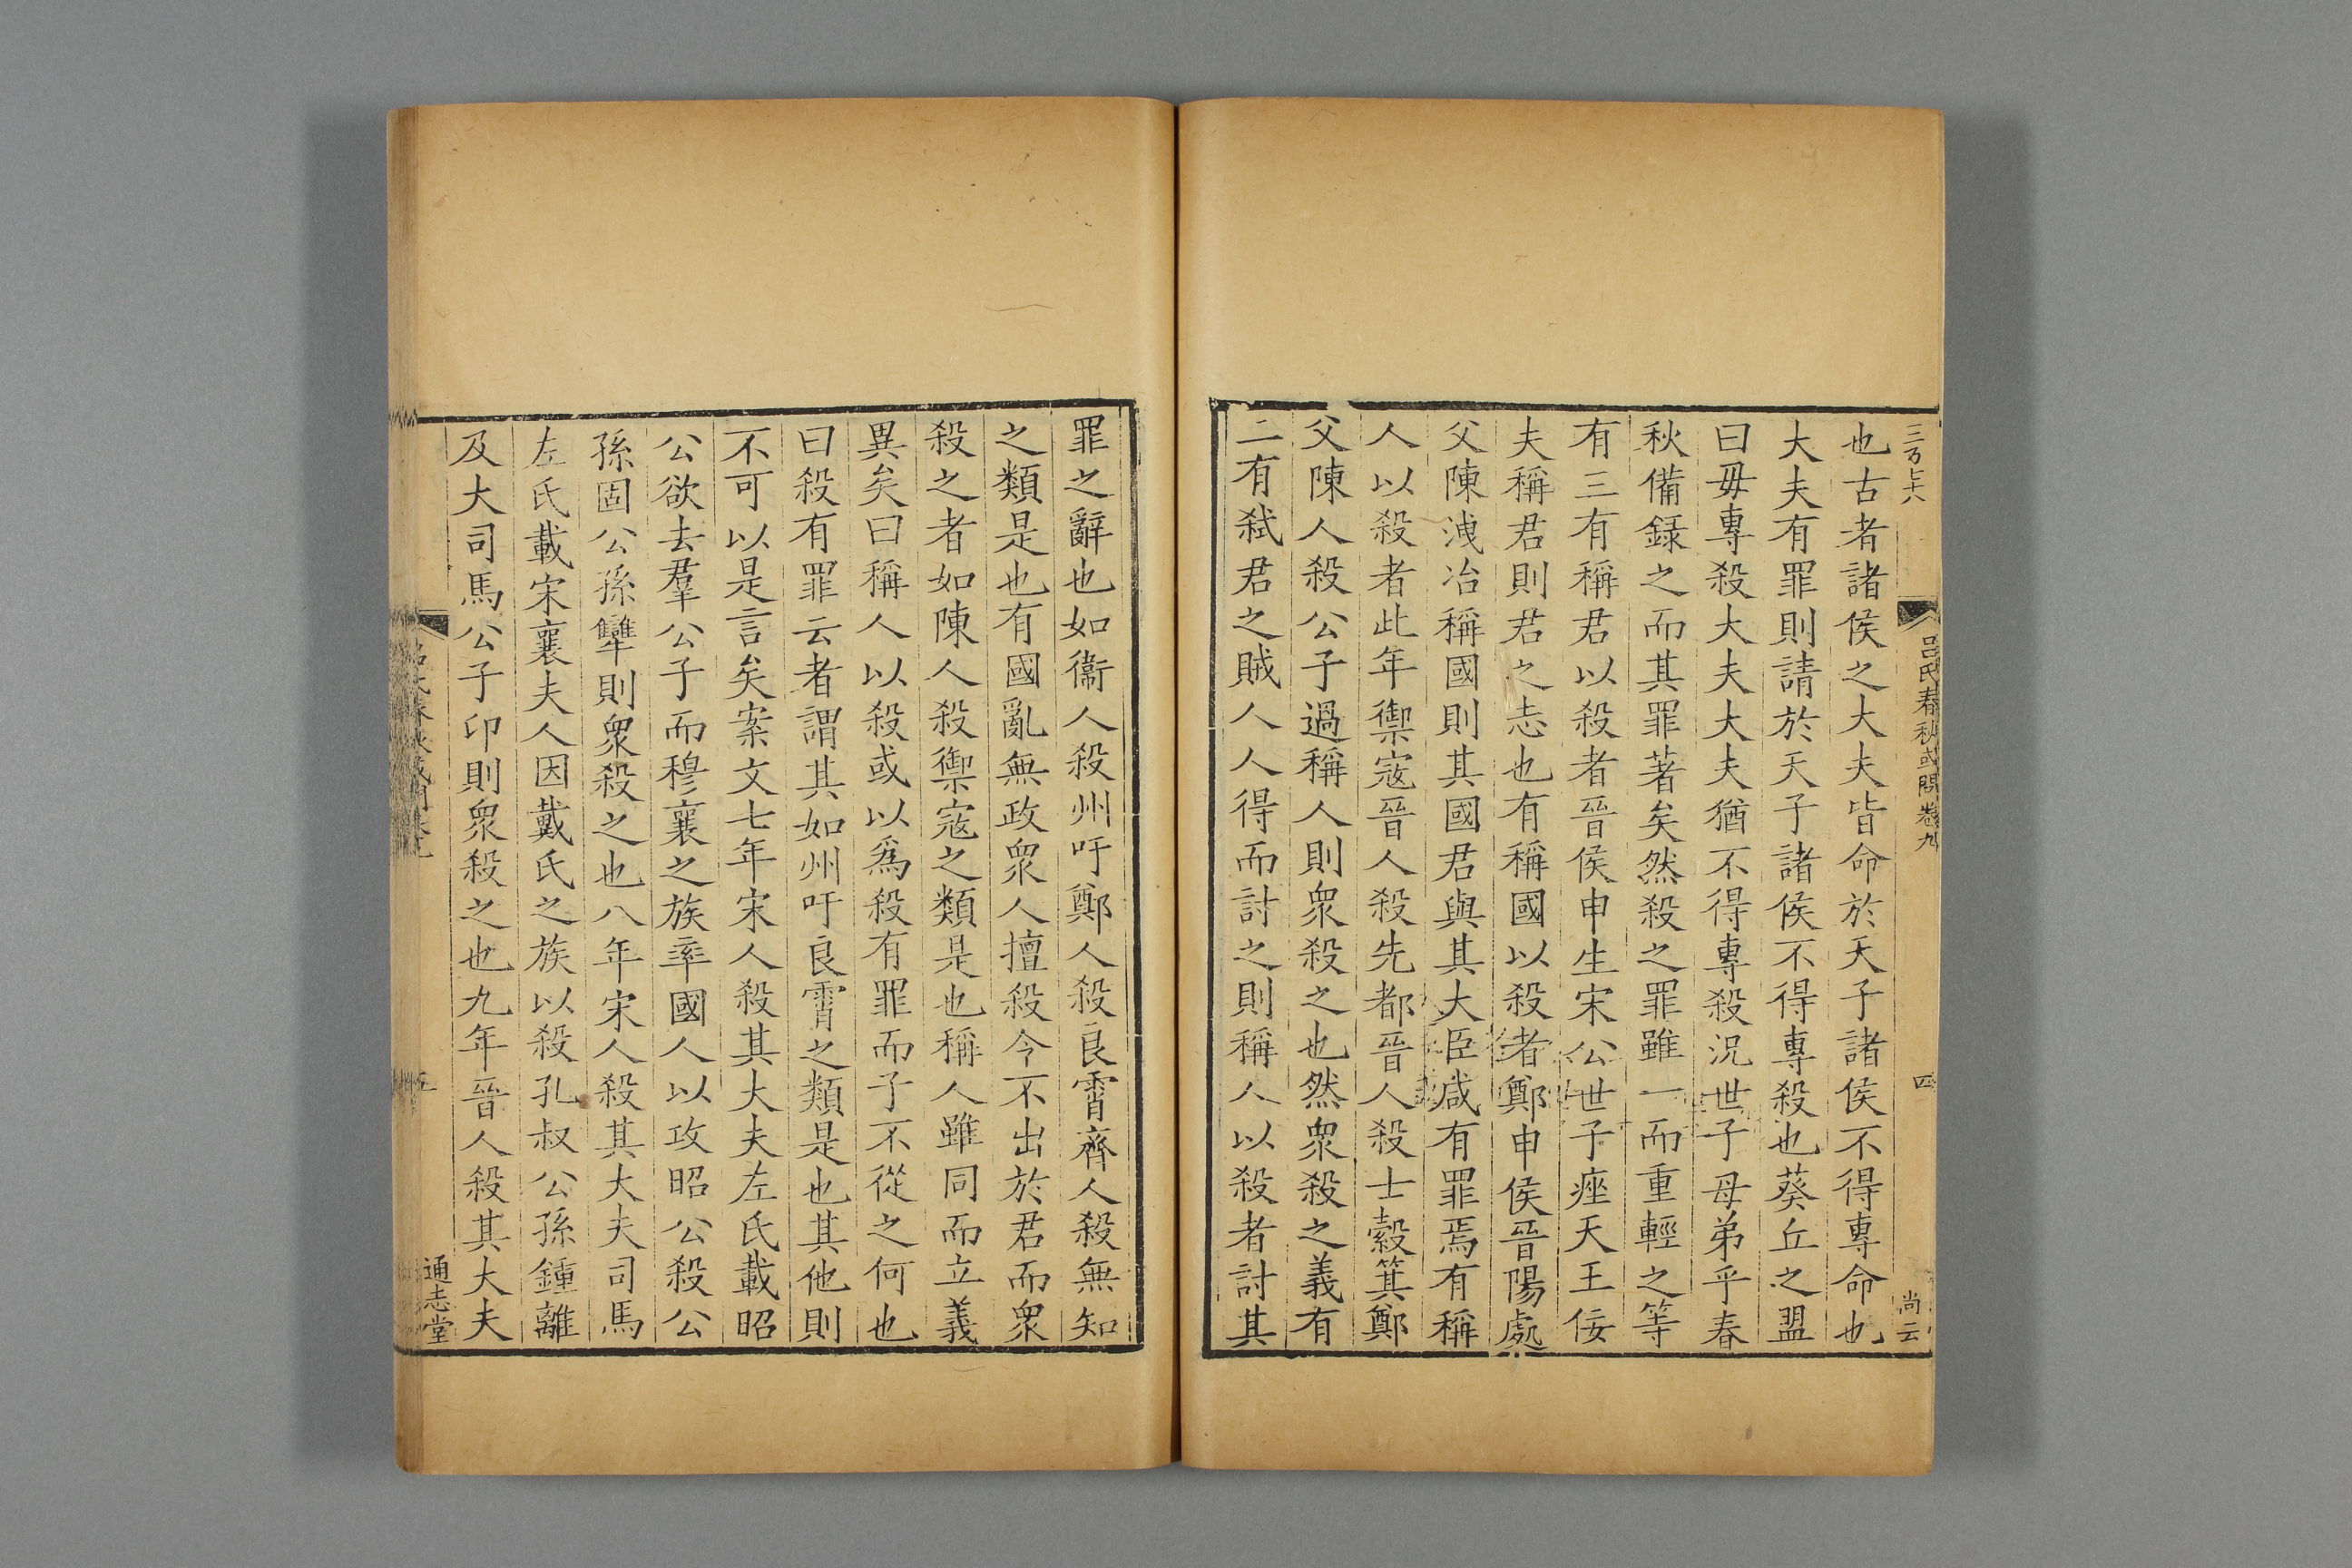 三百七十八
呂氏春秋或問卷九
四
尚云
也古者諸侯之大夫皆命於天子諸侯不得專命也
大夫有罪則請於天子諸侯不得專殺也葵丘之盟
曰毋專殺大夫大夫猶不得專殺況世子母弟乎春
秋備録之而其罪著矣然殺之罪雖一而重輕之等
有三有稱君以殺者晉侯申生宋公世子痤天王佞
夫稱君則君之志也有稱國以殺者鄭申侯晉陽處
父陳洩冶稱國則其國君與其大臣咸有罪焉有稱
人以殺者此年禦寇晉人殺先都晉人殺士縠箕鄭
父陳人殺公子過稱人則衆殺之也然衆殺之義有
二有弑君之賊人人得而討之則稱人以殺者討其
罪之辭也如衞人殺州吁鄭人殺良霄齊人殺無知
之類是也有國亂無政衆人擅殺今不出於君而衆
殺之者如陳人殺禦寇之類是也稱人雖同而立義
異矣曰稱人以殺或以爲殺有罪而子不從之何也
曰殺有罪云者謂其如州吁良霄之類是也其他則
不可以是言矣案文七年宋人殺其大夫左氏載昭
公欲去羣公子而穆襄之族率國人以攻昭公殺公
孫固公孫鄭則衆殺之也八年宋人殺其大夫司馬
左氏載宋襄夫人因戴氏之族以殺孔叔公孫鍾離
及大司馬公子卬則衆殺之也九年晉人殺其大夫
五
通志堂